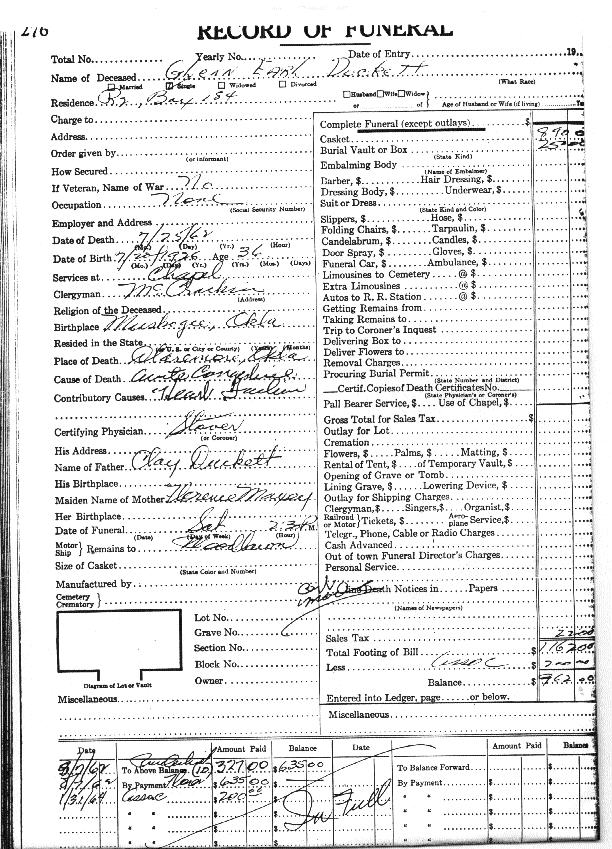 276
RECORD OF FUNERAL
Total No. Yearly No. Date of Entry 19
Name of Deceased Glenn Earl Duckett
(What Race)
Married Single Widowed Divorced
Residence R2, Box 184
Husband Wife Widow or of
Age of Husband or Wife (if living)
Charge to
Address
Order given by
(or informant)
How Secured
If Veteran, Name of War No
Occupation None
(Social Security Number)
Employer and Address
Date of Death 7/25/62
(Mo.) (Day) (Yr.) (Hour)
Date of Birth 1926 Age 36
(Mo.) (Day) (Yr.) (Yrs.) (Mos.) (Days)
Services at Chapel
Clergyman
(Address)
Religion of the Deceased
Birthplace Muskogee, Okla
Resided in the State
(or U. S. or City or County) (Years) (Months)
Place of Death Claremore, Okla
Cause of Death
Contributory Causes Heart Failure
Certifying Physician
(or Coroner)
His Address
Name of Father Clay Duckett
His Birthplace
Maiden Name of Mother
Her Birthplace
Date of Funeral Sat 2:30 P M.
(Date) (Day of Week) (Hour)
Motor Ship Remains to Woodlawn
Size of Casket
(State Color and Number)
Manufactured by
Cemetery Crematory
Lot No.
Grave No.
Section No.
Block No.
Owner
Diagram of Lot or Vault
Miscellaneous
Complete Funeral (except outlays) $
Casket 890 0
Burial Vault or Box 250
(State Kind)
Embalming Body
(Name of Embalmer)
Barber, $ Hair Dressing, $
Dressing Body, $ Underwear, $
Suit or Dress
(State Kind and Color)
Slippers, $ Hose, $
Folding Chairs, $ Tarpaulin, $
Candelabrum, $ Candles, $
Door Spray, $ Gloves, $
Funeral Car, $ Ambulance, $
Limousines to Cemetery @ $
Extra Limousines @ $
Autos to R. R. Station @ $
Getting Remains from
Taking Remains to
Trip to Coroner's Inquest
Delivering Box to
Deliver Flowers to
Removal Charges
Procuring Burial Permit
(State Number and District)
Certif. Copies of Death Certificates No.
(State Physician's or Coroner's)
Pall Bearer Service, $ Use of Chapel, $
Gross Total for Sales Tax $
Outlay for Lot
Cremation
Flowers, $ Palms, $ Matting, $
Rental of Tent, $ of Temporary Vault, $
Opening of Grave or Tomb
Lining Grave, $ Lowering Device, $
Outlay for Shipping Charges
Clergyman, $ Singers, $ Organist, $
Railroad or Motor Tickets, $ Aeroplane Service, $
Telegr., Phone, Cable or Radio Charges
Cash Advanced
Out of town Funeral Director's Charges
Personal Service
Death Notices in Papers
(Names of Newspapers)
Sales Tax 22 00
Total Footing of Bill $ 1162 00
Less Assoc $ 200 00
Balance $ 962 00
Entered into Ledger, page or below.
Miscellaneous
Date Amount Paid Balance Date Amount Paid Balance
To Above Balance (10) 327 00 $635 00 To Balance Forward
By Payment 635 00 By Payment
1/31/64 Assoc 200 00
" " In Full " "
" " " "
" " " "